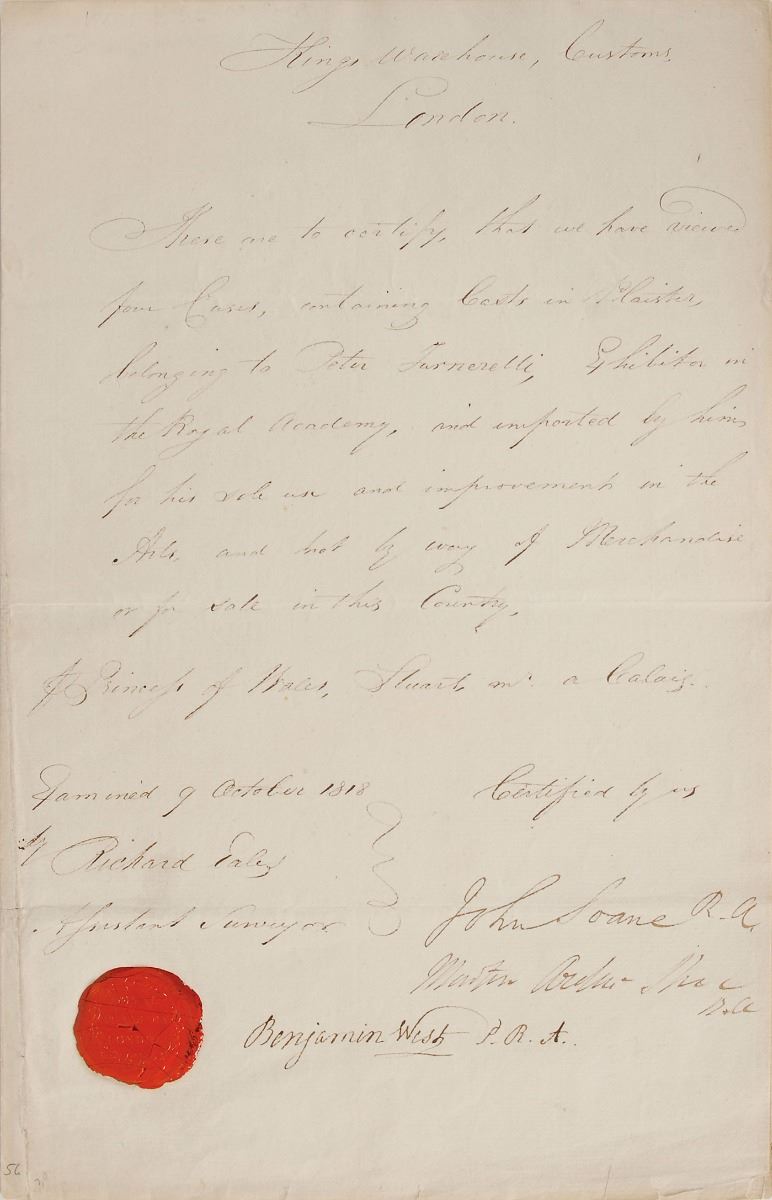 Kings Warehouse, Customs,
London.
These are to certify, that we have viewed
four Cases, containing Casts in Plaister,
belonging to Peter Turnerelli, Exhibitor in
the Royal Academy, and imported by him
for his sole use and improvement in the
Arts, and not by way of Merchandise
or for sale in this Country,
Princess of Wales, Stuart, mr. a Calais.
Examined 9 October 1818
Certified by us
by Richard
Assistant Surveyor
John Soane R.A.
Martin Archer Shee
R.A
Benjamin West P.R.A.
56